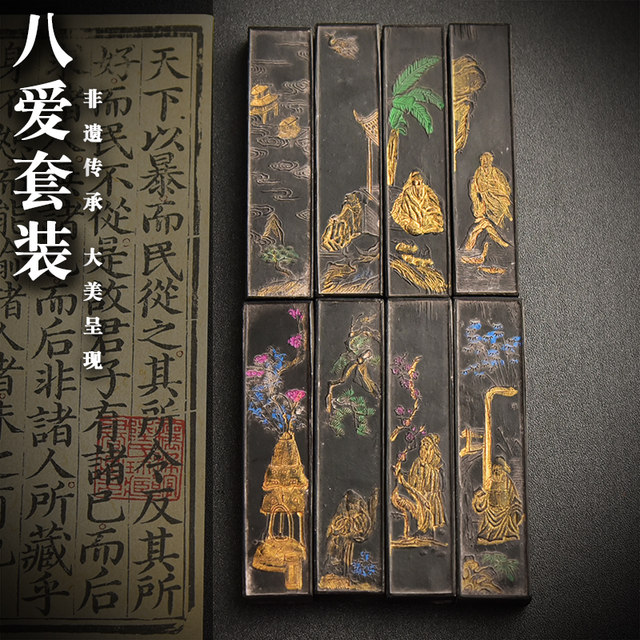 八爱套装
非遺传承 大美呈现
天下以暴而民從之其所令反其所
好而民不從是故君子有諸己而后
而后非諸人所藏乎
諸人者未之有也